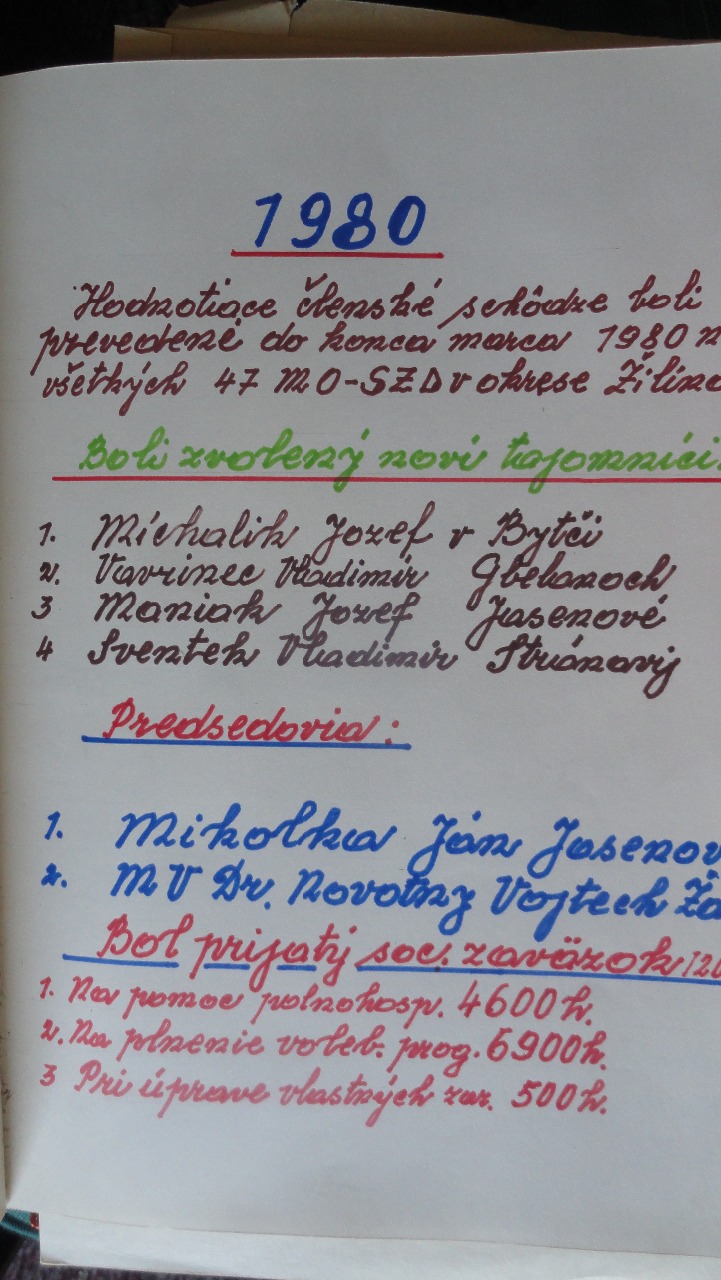 1980
Hodnotiace členské schôdze boli
prevedené do konca marca 1980 n
všetkých 47 MO-SZD v okrese Žilina
Boli zvolený noví tajomníci:
1. Michalik Jozef v Bytči
2. Vavrinec Vladimír Gbelanoch
3 Maniak Jozef Jasenové
4 Sventek Vladimír Stránavy
Predsedovia:
1. Mikolka Ján Jasenov
2. MV Dr. Novotny Vojtech Ža
Bol prijatý soc. zaväzok 120
1. Na pomoc polnohosp. 4600 h.
2. Na plnenie voleb. prog. 6900 h.
3 Pri úprave vlastných zar. 500 h.